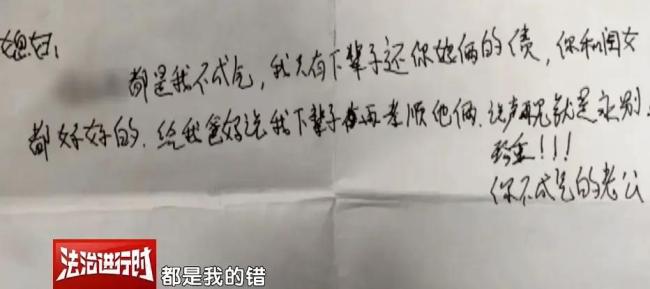 媳妇：
都是我不成气，我只有下辈子还你娘俩的债，你和闺女
都好好的．给我爸妈说我下辈子再孝顺他俩．说声再见就是永别．
珍重!!!
你不成气的老公
法治进行时
都是我的错